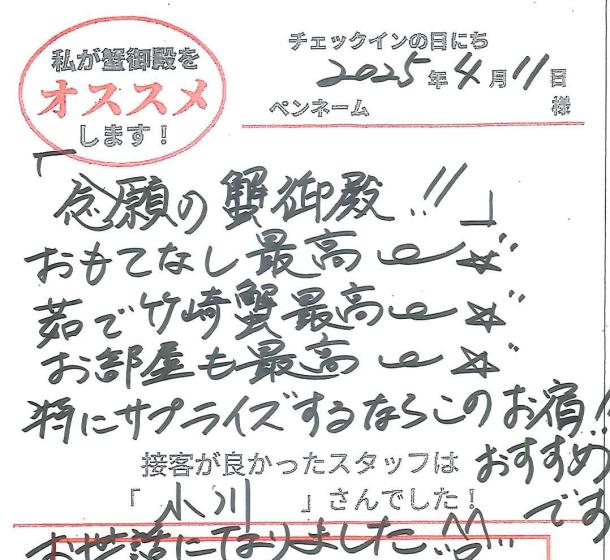 私が蟹御殿を
オススメ
します!
チェックインの日にち
2025年4月11日
ペンネーム 様
「念願の蟹御殿!!」
おもてなし最高
茹で竹崎蟹最高
お部屋も最高
特にサプライズするならこのお宿
おすすめ
です
接客が良かったスタッフは
「小川」さんでした!
お世話になりました